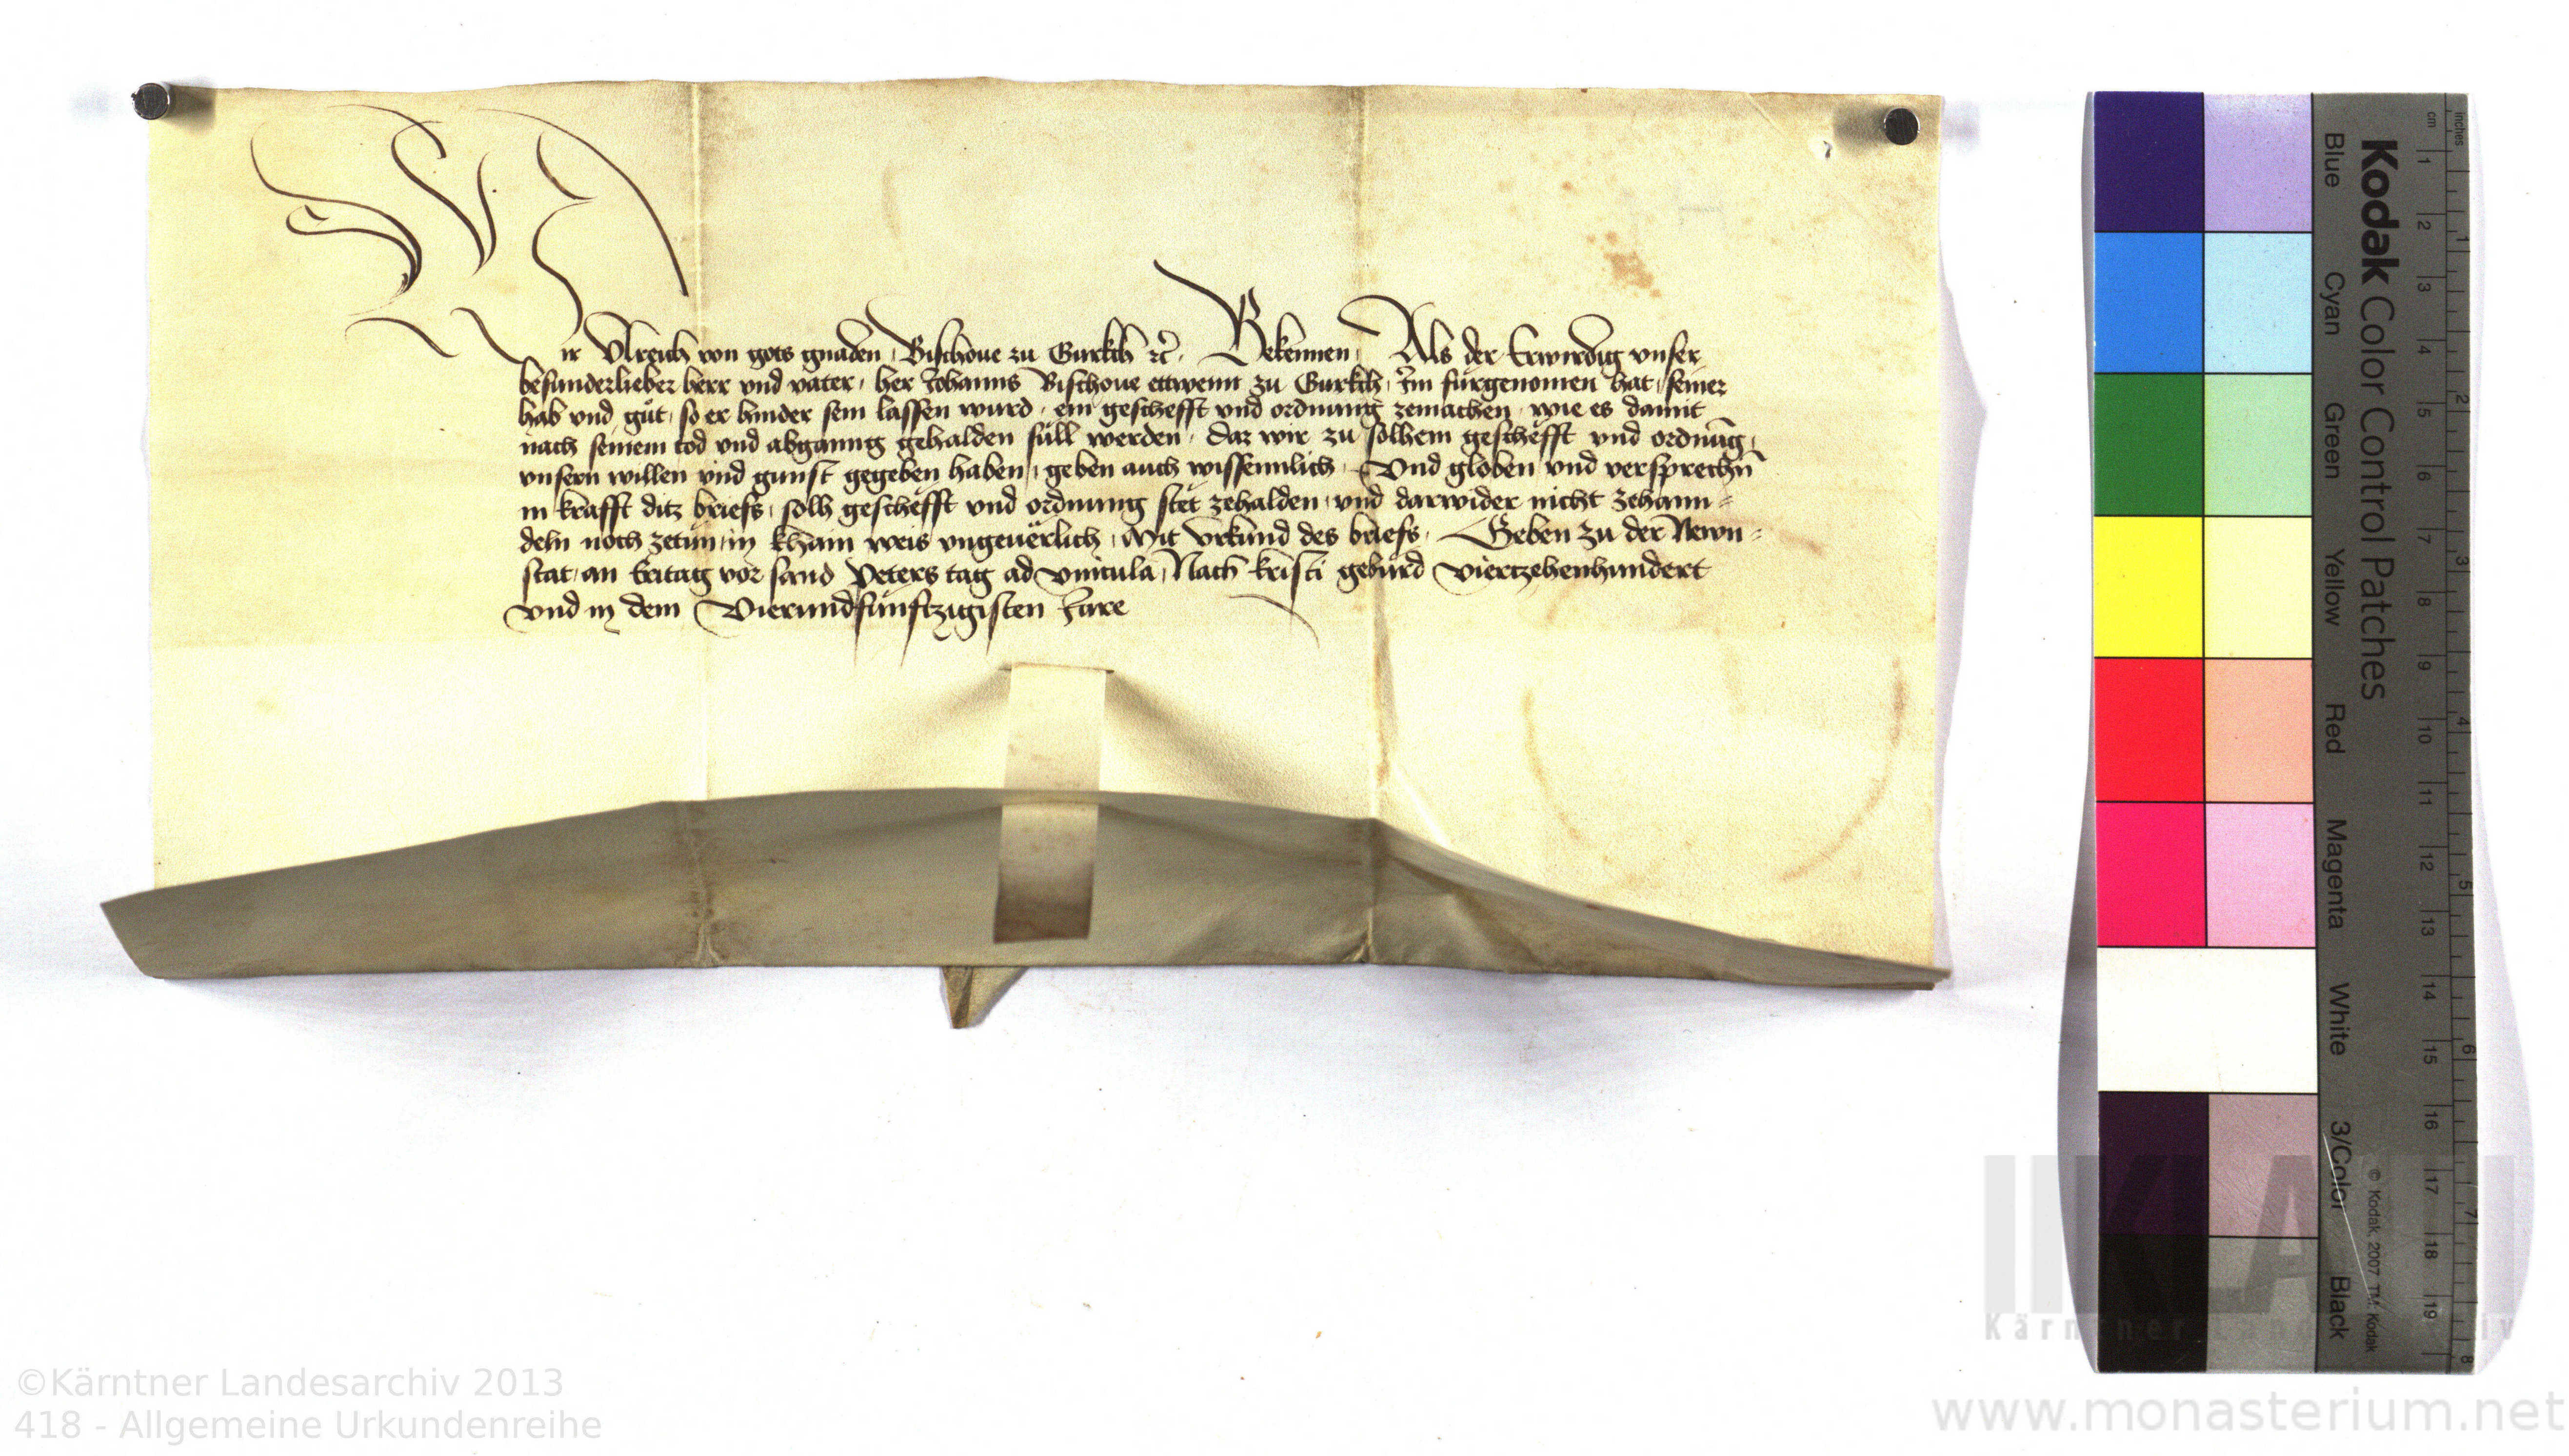 Wir Ulreich von gots gnaden, Bischoue zu Gurkch etc. Bekennen, Als der Erwirdig vnser
besunderlieber herr vnd vater, her Johanns Bischoue ettwenn zu Gurkch, Im fürgenomen hat, seiner
hab vnd güt, so er hinder sein lassen wurd, ein geschefft vnd ordnung zemachen, wie es damit
nach seinem tod vnd abganng gehalden süll werden, daz wir zu solhem geschefft vnd ordnūg,
vnsern willen vnd gunst gegeben haben, geben auch wissennlich, Vnd globen vnd versprechn̄
in krafft ditz briefs, solh geschefft vnd ordnung stet zehalden, vnd darwider nicht zehann=
deln noch zetün, in kham weis vngeuërlich, Mit vrkund des briefs, Geben zu der Newn=
stat, an Eritag vor sand Peters tag ad vincula, Nach kristi gebürd Viertzehenhundert
vnd in dem Vierundfünftzigisten Jare
Kodak Color Control Patches
Blue Cyan Green Yellow Red Magenta White 3/Color Black
© Kodak, 2007 TM: Kodak
inches 1 2 3 4 5 6 7 8
cm 1 2 3 4 5 6 7 8 9 10 11 12 13 14 15 16 17 18 19
©Kärntner Landesarchiv 2013
418 - Allgemeine Urkundenreihe
www.monasterium.net